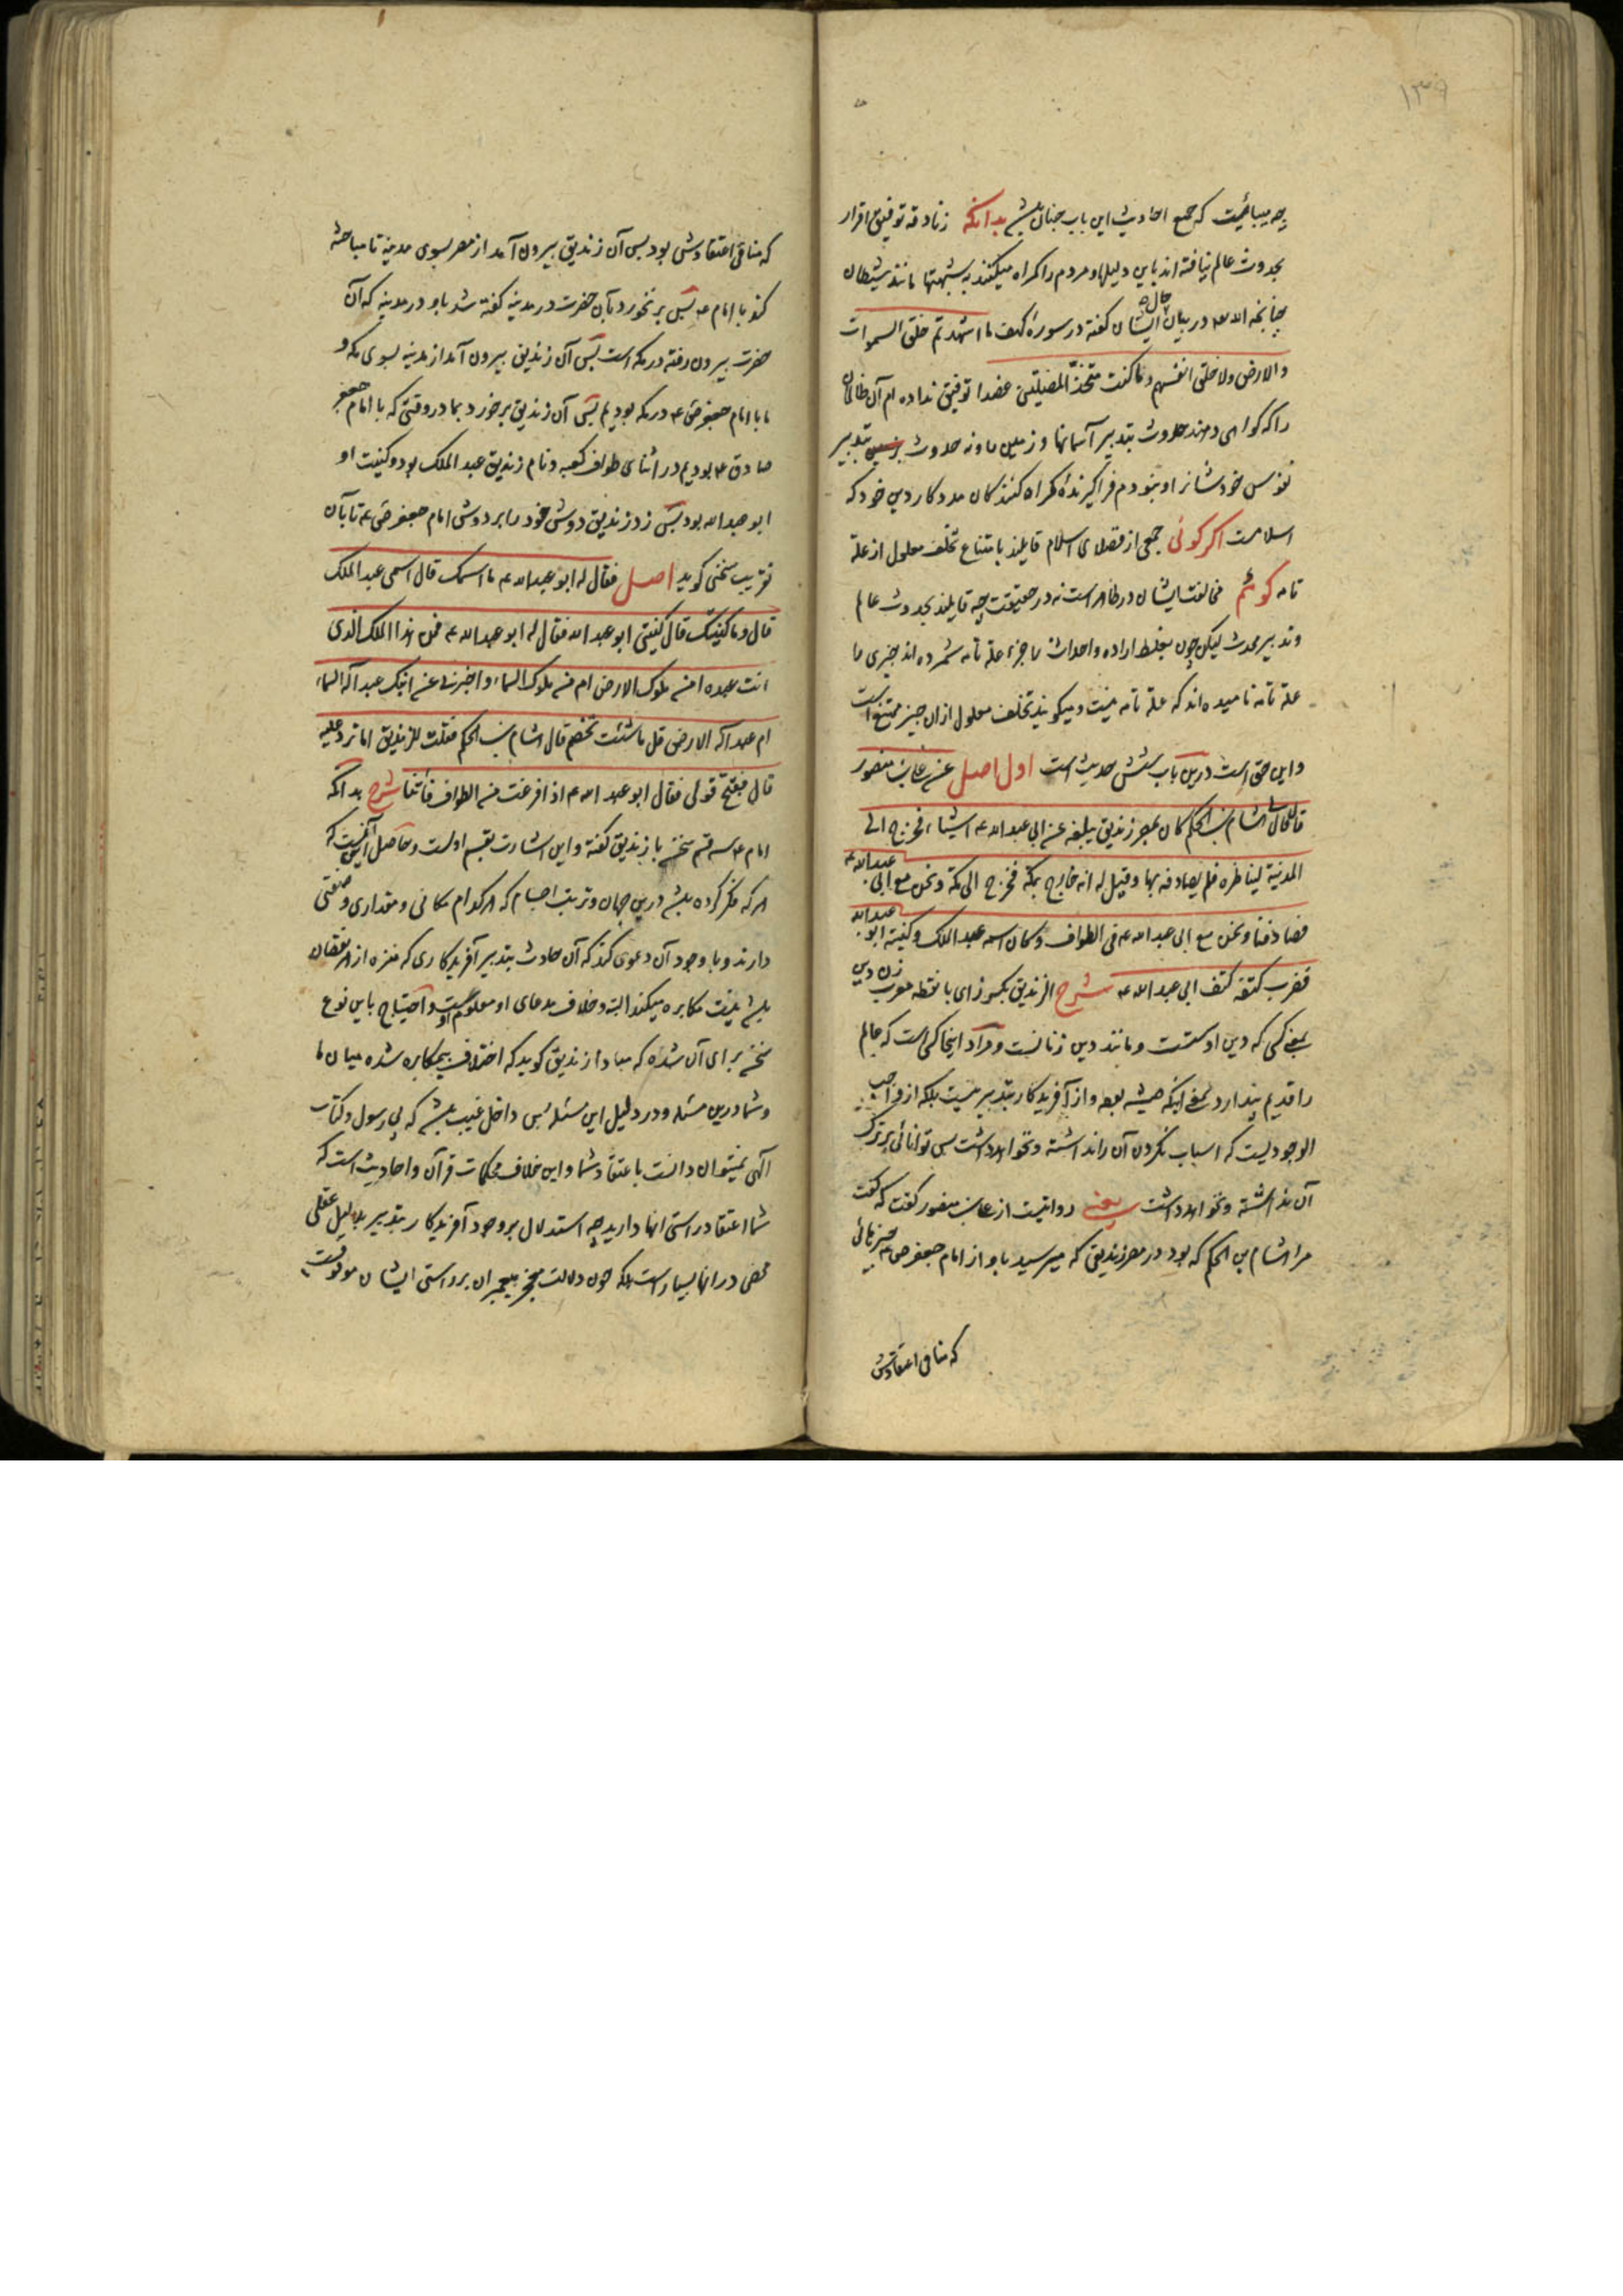 ۱۳۹
چه میبائیست که جمع احادیث این باب چنان باشد بدانکه زنادقه توفیق اقرار
بحدوث عالم نیافته اند باین دلیلها و مردم را کمراه میکنند به شبهتها مانند شیطان
چنانچه الله تعه در بیان حال ایشان کفته در سورهٔ کهف ما اشهدتهم خلق السموات
والارض ولا خلق انفسهم وما کنت متخذ المضلین عضدا توفیق نداده ام آن ظالمان
را که کواهی دهند حدوث بتدبیر آسمانها و زمین را و نه حدوث بتدبیر
نفوس خودشانرا و نبودم فراکیرندهٔ کمراه کنندکان مددکار دین خود که
اسلامست اکر کوئی جمعی از فضلای اسلام قایلند بامتناع تخلف معلول از علة
تامه کوئیم مخالفت ایشان در ظاهر است نه در حقیقت چه قایلند بحدوث عالم
و تدبیر محدث لیکن چون بغلط اراده و احداث را جزء علة تامه شمرده اند چیزی را
علة تامه نامیده اند که علة تامه نیست و میکویند تخلف معلول ازان چیز ممتنع است
و این حق است درین باب شش حدیث است اول اصل عن علی بن منصور
قال قال لی هشام بن الحکم کان بمصر زندیق یبلغه عن ابی عبدالله ع اشیاء فخرج الی
المدینة لیناظره فلم یصادفه بها وقیل له انه خارج بمکة فخرج الی مکة ونحن مع ابی عبدالله ع
فصادفنا ونحن مع ابی عبدالله ع فی الطواف وکان اسمه عبدالملک وکنیته ابو عبدالله
فضرب کتفه کتف ابی عبدالله ع شرح الزندیق بکسر زای با نقطه معرب زن دین
یعنی کسی که دین او سست و مانند دین زنانست و مراد اینجا کسی است که عالم
را قدیم پندارد یعنی اینکه همیشه بوده و از آفریدکار بتدبیر نیست بلکه از واجب
الوجودیست که اسباب نکردن آن را نداشته و نخواهد داشت پس توانائی بر ترک
آن نداشته و نخواهد داشت یعنی روایتست از علی بن منصور کفت که کفت
مرا هشام بن الحکم که بود در مصر زندیقی که میرسید باو از امام جعفر ص ع چیزهائی
که منافی اعتقادش
که منافی اعتقادش بود پس آن زندیق بیرون آمد از مصر بسوی مدینه تا مباحثه
کند با امام ع پس بر نخورد بآن حضرت در مدینه کفته شد باو در مدینه که آن
حضرت بیرون رفته در مکه است پس آن زندیق بیرون آمد از مدینه بسوی مکه و
ما با امام جعفر ص ع در مکه بودیم پس آن زندیق برخورد بما در وقتی که با امام جعفر
صادق ع بودیم در اثنای طواف کعبه و نام زندیق عبدالملک بود و کنیت او
ابو عبدالله بود پس زد زندیق دوش خود را بر دوش امام جعفر ص ع تا بآن
تقریب سخنی کوید اصل فقال له ابو عبدالله ع ما اسمک قال اسمی عبدالملک
قال وما کنیتک قال کنیتی ابو عبدالله فقال له ابو عبدالله ع فمن هذا الملک الذی
انت عبده امن ملوک الارض ام من ملوک السماء واخبرنی عن ابنک عبد اله السماء
ام عبد اله الارض قل ما شئت تخصم قال هشام بن الحکم فقلت للزندیق اما ترد علیه
قال فقبح قولی فقال ابو عبدالله ع اذا فرغت من الطواف فأتنا شرح بدانکه
امام ع سه قسم سخن با زندیق کفته و این اشارت بقسم اولست و حاصل آن اینست که
هر که فکر کرده باشد درین جهان و ترتیب اجسام که هر کدام مکانی و مقداری و صفتی
دارند و با وجود آن دعوی کند که آن حادث بتدبیر آفریدکاری که منزه از هر نقصان
باشد نیست مکابره میکند البته و خلاف مدعای او معلوم اوست و احتیاج باین نوع
سخن برای آن شده که مبادا زندیق کوید که اختلاف بیمکابره شده میان ما
و شما درین مسئله و در دلیل این مسئله پس داخل غیب باشد که بی رسول و کتاب
الهی نمیتوان دانست باعتقاد شما و این خلاف محکمات قرآن و احادیث است که
شما اعتقاد راستی آنها دارید چه استدلال بر وجود آفریدکار بتدبیر بدلیل عقلی
محض در آنها بسیار است بلکه چون دلالت معجز پیغمبران بر راستی ایشان موقوفست